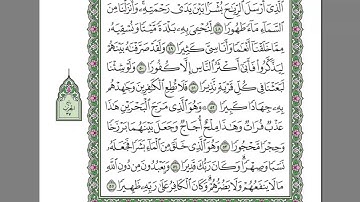 الَّذِي أَرْسَلَ الرِّيَاحَ بُشْرًا بَيْنَ يَدَيْ رَحْمَتِهِ وَأَنزَلْنَا مِنَ
السَّمَاءِ مَاءً طَهُورًا ٤٨ لِّنُحْيِيَ بِهِ بَلْدَةً مَّيْتًا وَنُسْقِيَهُ
مِمَّا خَلَقْنَا أَنْعَامًا وَأَنَاسِيَّ كَثِيرًا ٤٩ وَلَقَدْ صَرَّفْنَاهُ بَيْنَهُمْ
لِيَذَّكَّرُوا فَأَبَىٰ أَكْثَرُ النَّاسِ إِلَّا كُفُورًا ٥٠ وَلَوْ شِئْنَا
لَبَعَثْنَا فِي كُلِّ قَرْيَةٍ نَّذِيرًا ٥١ فَلَا تُطِعِ الْكَافِرِينَ وَجَاهِدْهُم
بِهِ جِهَادًا كَبِيرًا ٥٢ وَهُوَ الَّذِي مَرَجَ الْبَحْرَيْنِ هَٰذَا
عَذْبٌ فُرَاتٌ وَهَٰذَا مِلْحٌ أُجَاجٌ وَجَعَلَ بَيْنَهُمَا بَرْزَخًا
وَحِجْرًا مَّحْجُورًا ٥٣ وَهُوَ الَّذِي خَلَقَ مِنَ الْمَاءِ بَشَرًا فَجَعَلَهُ
نَسَبًا وَصِهْرًا وَكَانَ رَبُّكَ قَدِيرًا ٥٤ وَيَعْبُدُونَ مِن دُونِ اللَّهِ
مَا لَا يَنفَعُهُمْ وَلَا يَضُرُّهُمْ وَكَانَ الْكَافِرُ عَلَىٰ رَبِّهِ ظَهِيرًا ٥٥